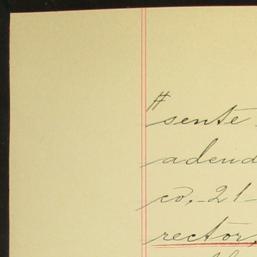 #
sente
adend
co, 21-
rector,